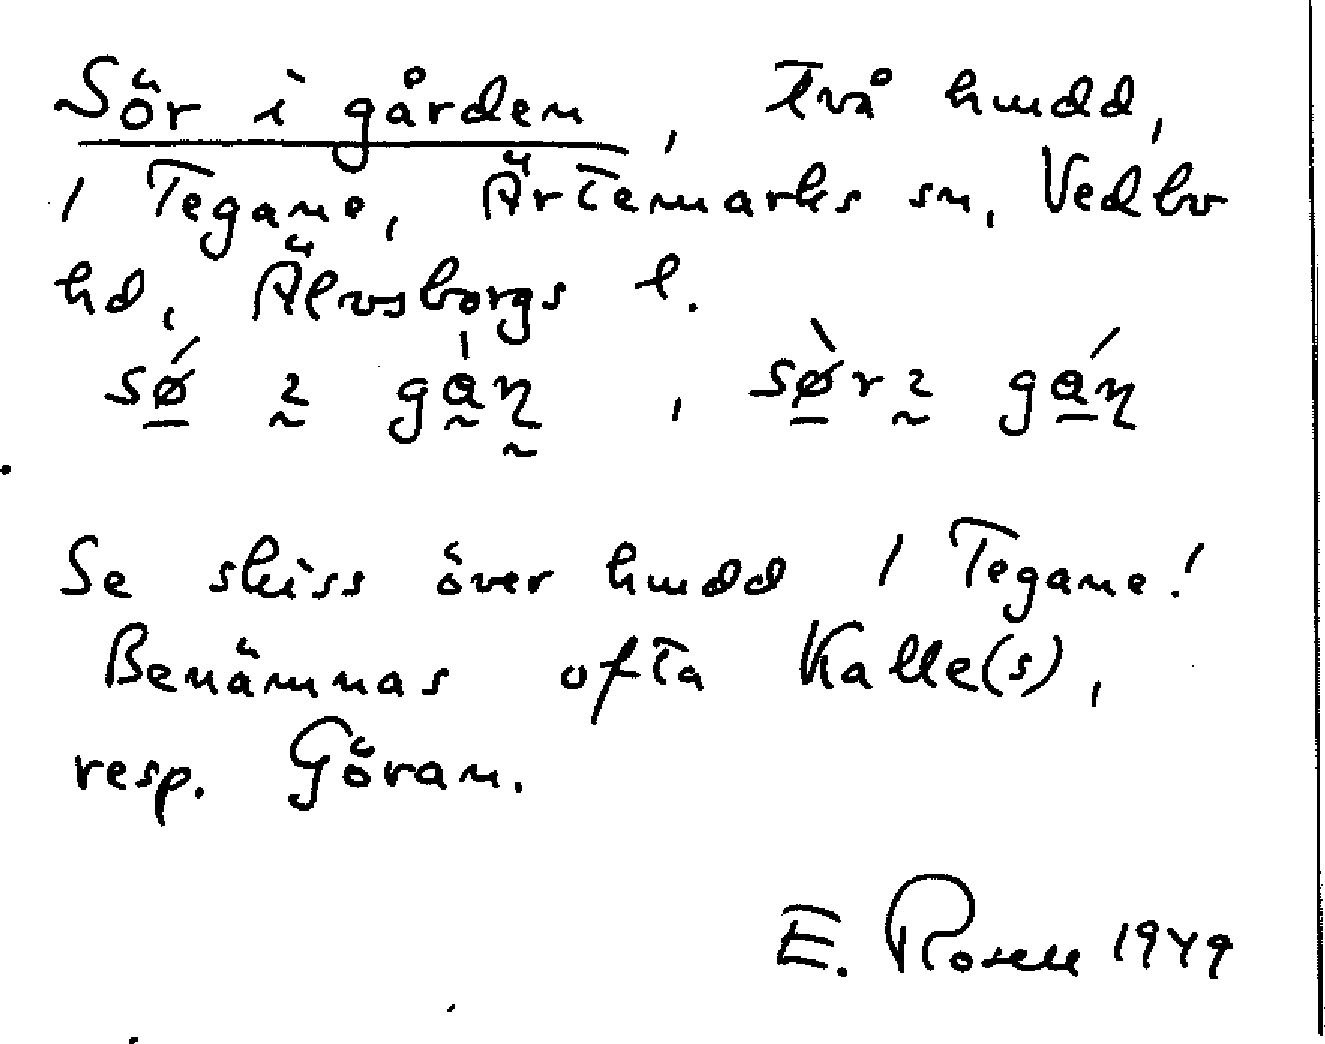 Sör i gården, två hmdd,
1 Tegane, Ärtemarks sn, Vedbo
hd, Älvsborgs l.
Se skiss över hmdd 1 Tegane!
Benämnas ofta Kalle(s),
resp. Göran.
E. Rosell 1949